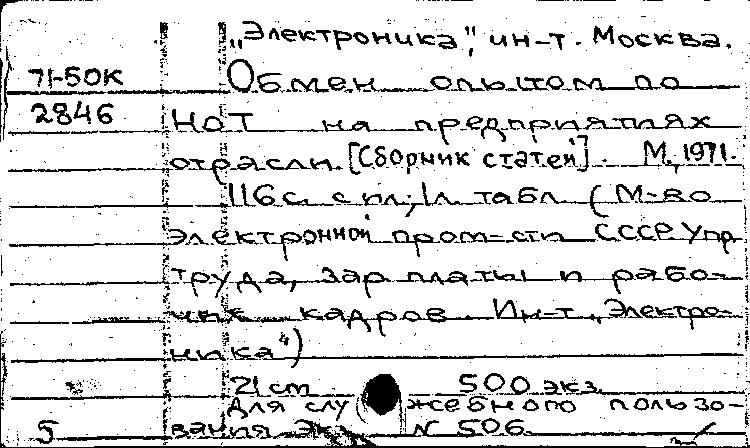 „Электроника“, ин-т. Москва.
71-50К Обмен опытом по
2846 НОТ на предприятиях
отрасли. [Сборник статей]. М., 1971.
116 с. с ил.; 1 л. табл. (М-во
электронной пром-сти СССР Упр
труда, зар платы и рабо-
чих кадров. Ин-т „Электро-
ника“)
21 cm 500 экз.
Для служебного пользо-
5 вания № 506.